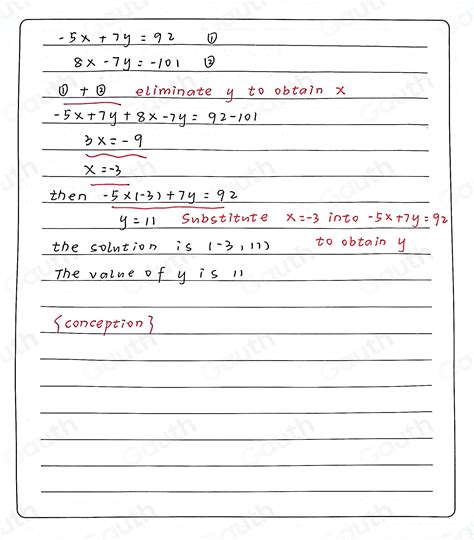 -5x + 7y = 92 ①
8x - 7y = -101 ②
① + ② eliminate y to obtain x
-5x + 7y + 8x - 7y = 92 - 101
3x = -9
x = -3
then -5x(-3) + 7y = 92
y = 11 Substitute x = -3 into -5x + 7y = 92
to obtain y
the solution is (-3, 11)
The value of y is 11
{conception}
Gauth